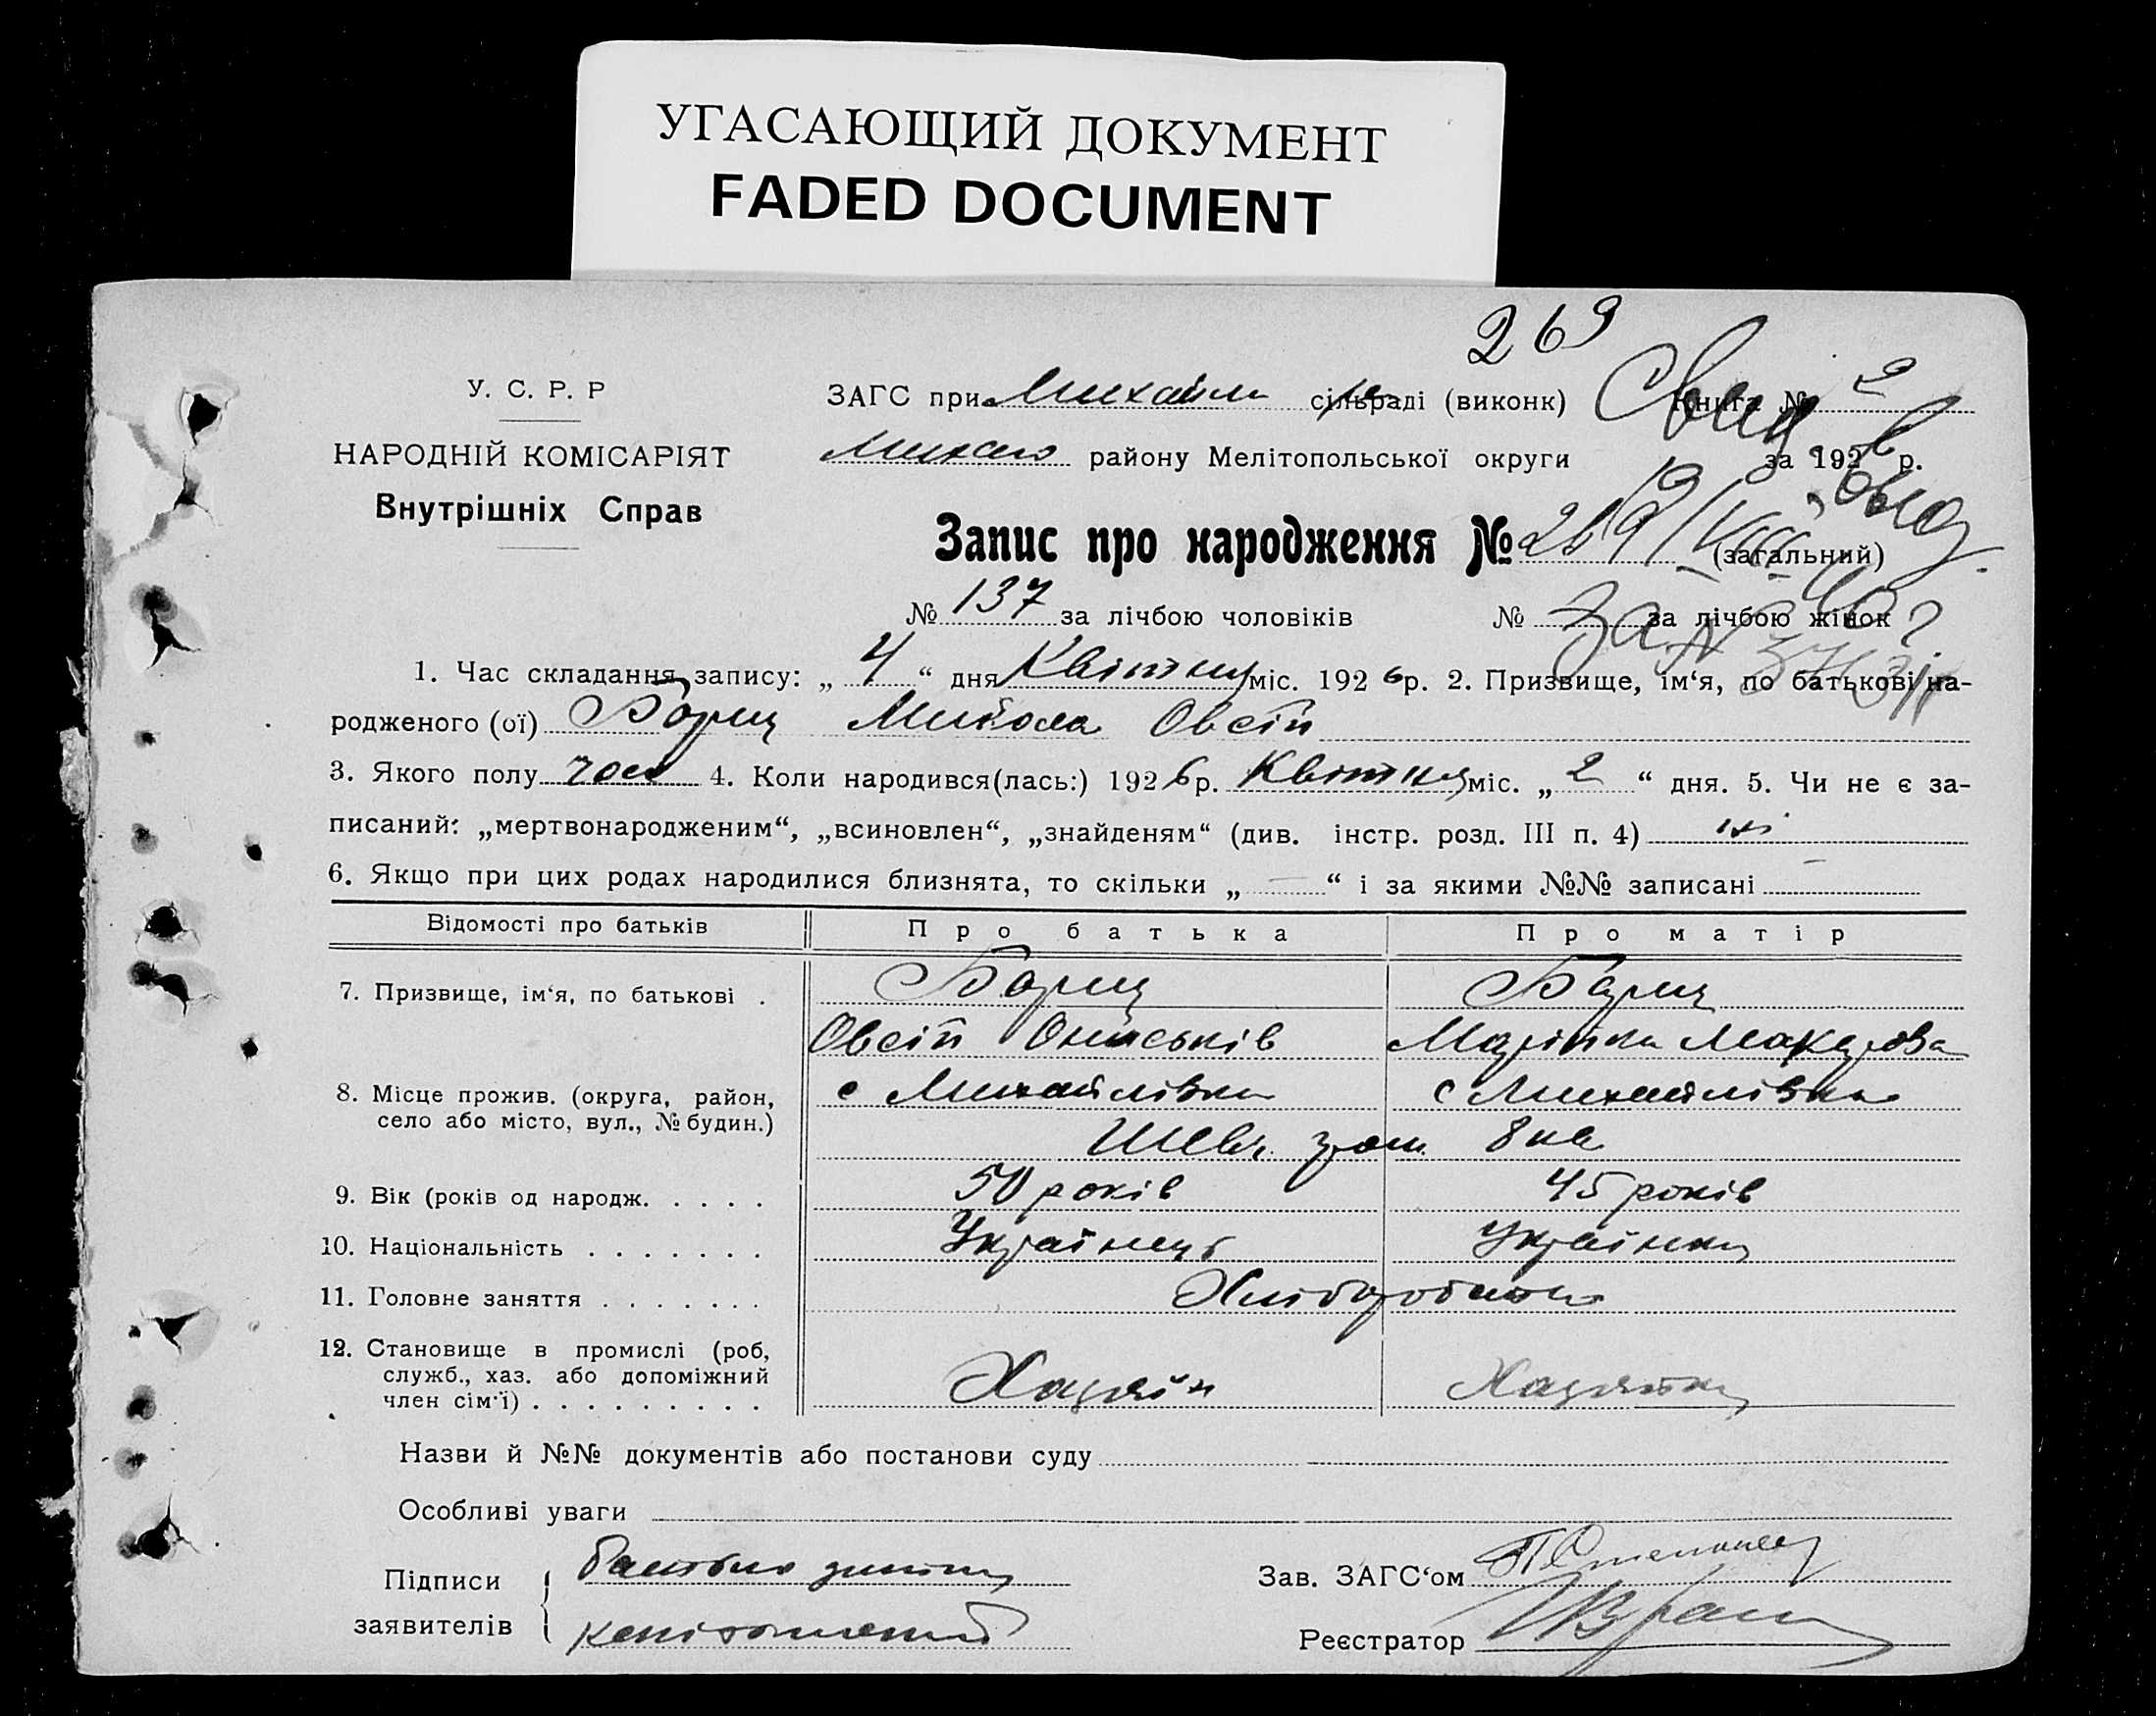 УГАСАЮЩИЙ ДОКУМЕНТ
FADED DOCUMENT
269
У. С. Р. Р
ЗАГС при Михайли сільраді (виконк) Книга № 2
НАРОДНІЙ КОМІСАРІЯТ
району Мелітопольської округи за 1926 р.
Внутрішніх Справ
Запис про народження № 269 (загальний)
№ 137 за лічбою чоловіків № за лічбою жінок
1. Час складання запису: „ 4 “ дня Квітня міс. 1926 р. 2. Призвище, ім‘я, по батькові на-
родженого (ої) Борщ Микола Овсій
3. Якого полу чол 4. Коли народився(лась:) 1926 р. Квітня міс. „ 2 “ дня. 5. Чи не є за-
писаний: „мертвонародженим“, „всиновлен“, „знайденям“ (див. інстр. розд. III п. 4) ні
6. Якщо при цих родах народилися близнята, то скільки „ — “ і за якими №№ записані —
Відомості про батьків Про батька Про матір
7. Призвище, ім‘я, по батькові . Борщ Борщ
Овсій Ониськів Марійка Макарова
8. Місце прожив. (округа, район, с Михайлівка с Михайлівка
село або місто, вул., № будин.)
Шевч. 8 кв
9. Вік (років од народж. . . . . 50 років 45 років
10. Національність . . . . . . . Українець Українка
11. Головне заняття . . . . . . . Хліборобство
12. Становище в промислі (роб,
служб., хаз. або допоміжний
член сім‘ї) . . . . . . . . . Хазяїн Хазяйка
Назви й №№ документів або постанови суду
Особливі уваги
Підписи батько дитини Зав. ЗАГС‘ом
заявителів Реєстратор